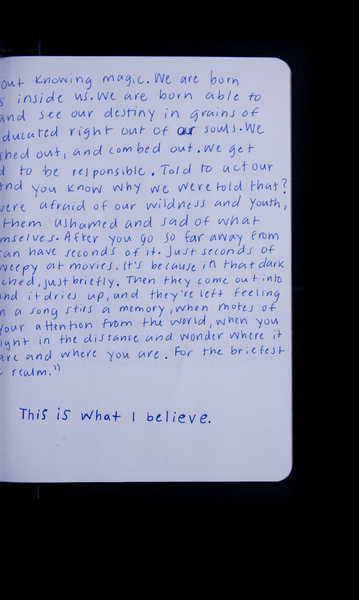 out knowing magic. We are born
s inside us. We are born able to
and see our destiny in grains of
ducated right out of our souls. We
shed out, and combed out. We get
d to be responsible. Told to act our
And you know why we were told that?
were afraid of our wildness and youth,
them ashamed and sad of what
mselves. After you go so far away from
can have seconds of it. Just seconds of
weepy at movies, it's because in that dark
ched, just briefly. Then they come out into
and it dries up, and they're left feeling
n a song stirs a memory, when motes of
your attention from the world, when you
ight in the distance and wonder where it
are and where you are. For the briefest
c realm."
This is what I believe.